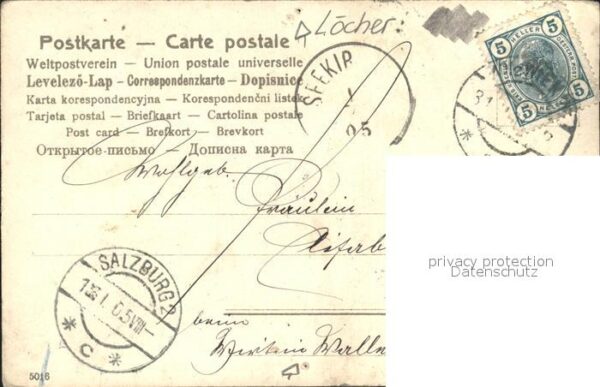 Löcher:
Postkarte — Carte postale
Weltpostverein — Union postale universelle
Levelezö-Lap — Correspondenzkarte — Dopisnice
Karta korespondencyjna — Korespondenční listek
Tarjeta postal — Briefkaart — Cartolina postale
Post card — Brefkort — Brevkort
Открытое-письмо — Дописна карта
5 HELLER 5
5 5
SEEKIR
05
Wohlgeb.
Fräulein
privacy protection
Datenschutz
SALZBURG 2
* C *
beim
Wirtin Walle
5016